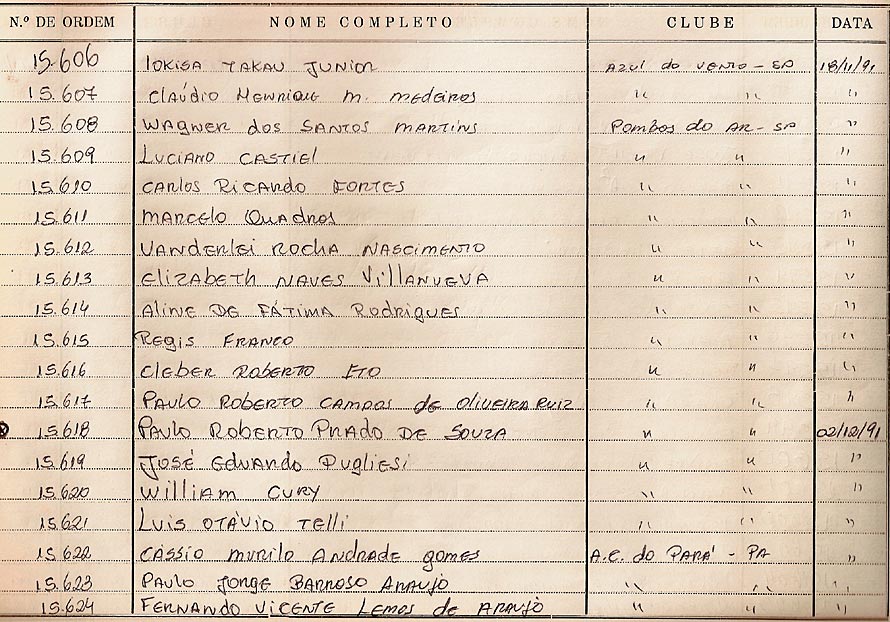 N.º DE ORDEM NOME COMPLETO CLUBE DATA
15.606 IOKISA TAKAU JUNIOR AZUL do VENTO - SP 18/11/91
15.607 CLAÚDIO HENRIQUE M. MEDEIROS " " "
15.608 WAGNER dos SANTOS MARTINS Pombos do AR - SP "
15.609 LUCIANO CASTIEL " " "
15.610 CARLOS RICARDO FORTES " " "
15.611 MARCELO QUADROS " " "
15.612 VANDERLEI ROCHA NASCIMENTO " " "
15.613 ELIZABETH NAVES VILLANUEVA " " "
15.614 ALINE DE FÁTIMA RODRIGUES " " "
15.615 REGIS FRANCO " " "
15.616 CLEBER ROBERTO ITO " " "
15.617 PAULO ROBERTO CAMPOS de OLIVEIRA RUIZ " " "
15.618 PAULO ROBERTO PRADO DE SOUZA " " 02/12/91
15.619 JOSÉ EDUARDO PUGLIESI " " "
15.620 WILLIAM CURY " " "
15.621 LUIS OTÁVIO TELLI " " "
15.622 CÁSSIO MURILO ANDRADE GOMES A.C. do PARÁ - PA "
15.623 PAULO JORGE BARROSO ARAUJO " " "
15.624 FERNANDO VICENTE LEMOS de ARAUJO " " "